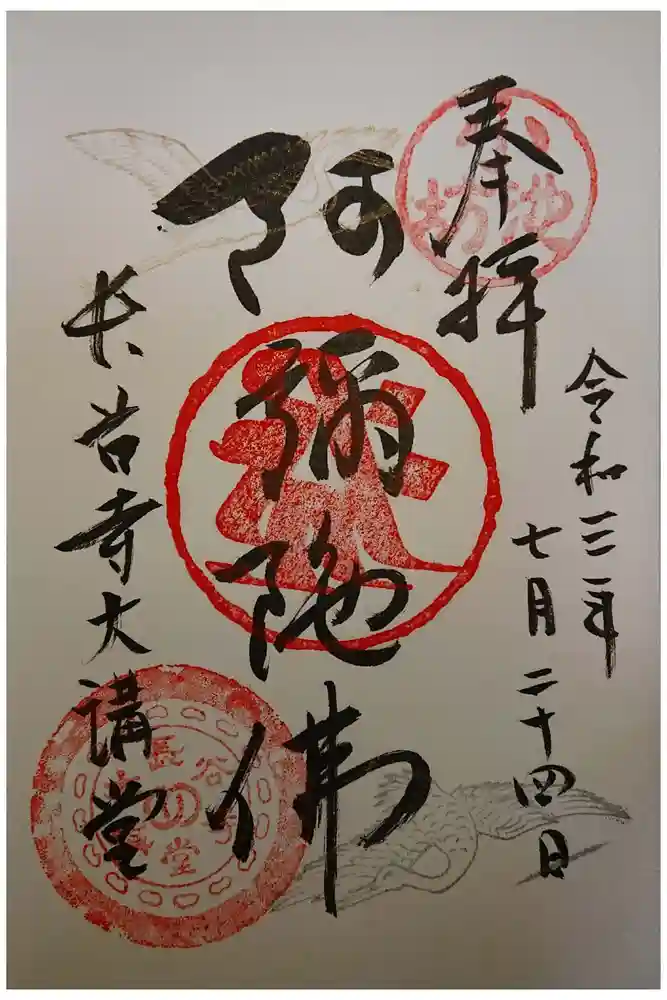 奉拝
令和三年
七月二十四日
阿彌陀佛
長谷寺大講堂